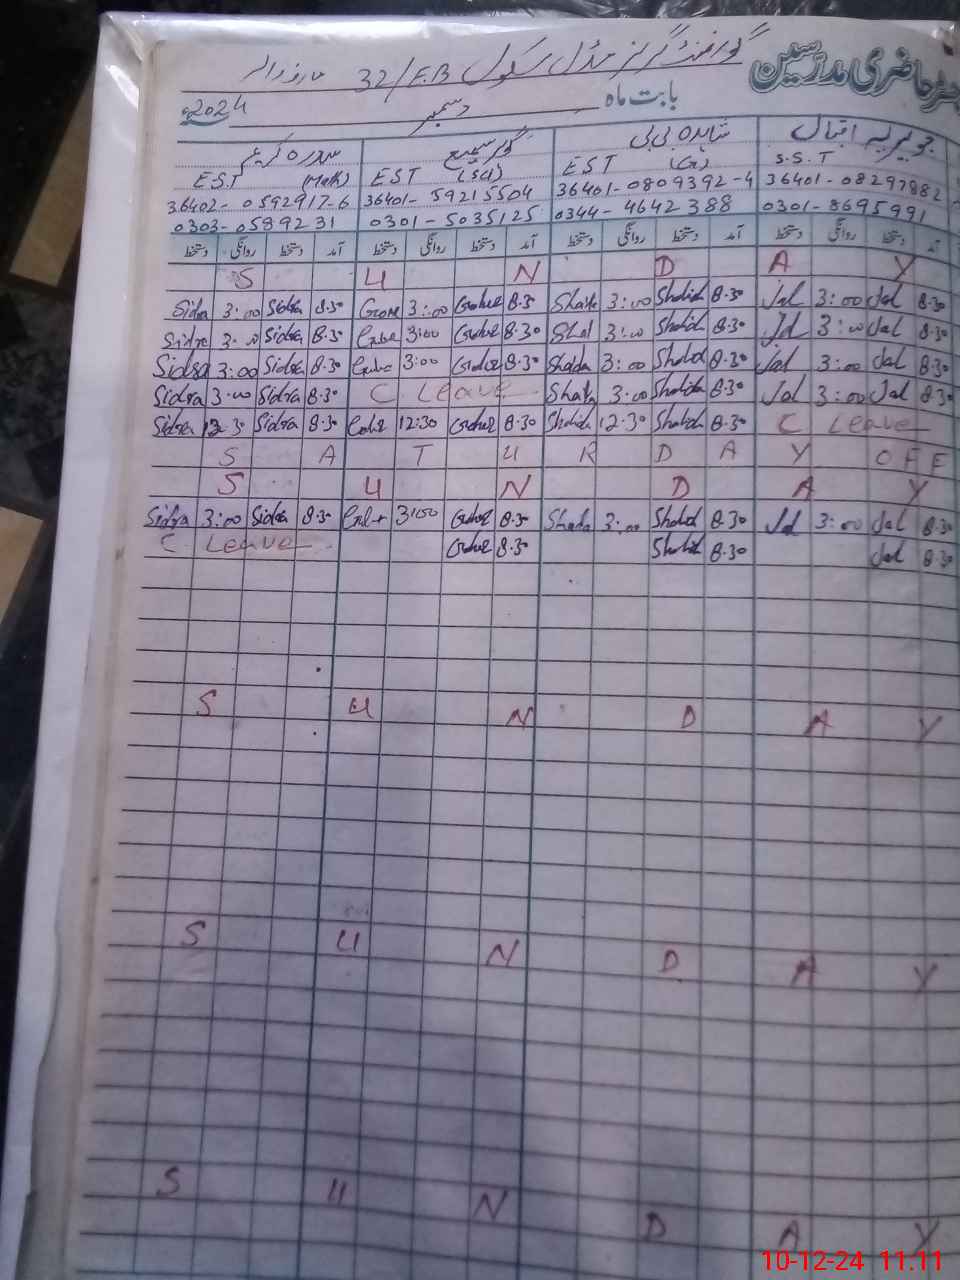 گورنمنٹ گرلز مڈل سکول 32/E.B
حاضری مدرسین
بابت ماہ دسمبر 2024
جویریہ اقبال شاہدہ بی بی گوہر سمیع سدرہ کریم
S.S.T EST (G) EST (Sci) E.S.T (Math)
36401-08297882 36401-0809392-4 36401-59215504 36402-0592917-6
0301-8695991 0344-4642388 0301-5035125 0303-0589231
آمد دستخط روانگی دستخط آمد دستخط روانگی دستخط آمد دستخط روانگی دستخط آمد دستخط روانگی دستخط
S U N D A Y
Sidra 3:00 Sidra 8.30 3:00 Gohar 8.30 3:00 Shahid 8.30 Jal 3:00 Jal 8.30
Sidra 3:00 Sidra 8.30 3:00 Gohar 8.30 3:00 Shahid 8.30 Jal 3:00 Jal 8.30
Sidra 3:00 Sidra 8.30 3:00 Gohar 8.30 3:00 Shahid 8.30 Jal 3:00 Jal 8.30
Sidra 3:00 Sidra 8.30 C Leave 3:00 Shahida 8.30 Jal 3:00 Jal 8.30
Sidra 12.30 Sidra 8.30 12:30 Gohar 8.30 12.30 Shahid 8.30 C Leave
S A T U R D A Y OFF
S U N D A Y
Sidra 3:00 Sidra 8.30 3:00 Gohar 8.30 3:00 Shahid 8.30 Jal 3:00 Jal 8.30
C. Leave Gohar 8.30 Shahid 8.30 Jal 8.30
S U N D A Y
S U N D A Y
S U N D A Y
10-12-24 11.11